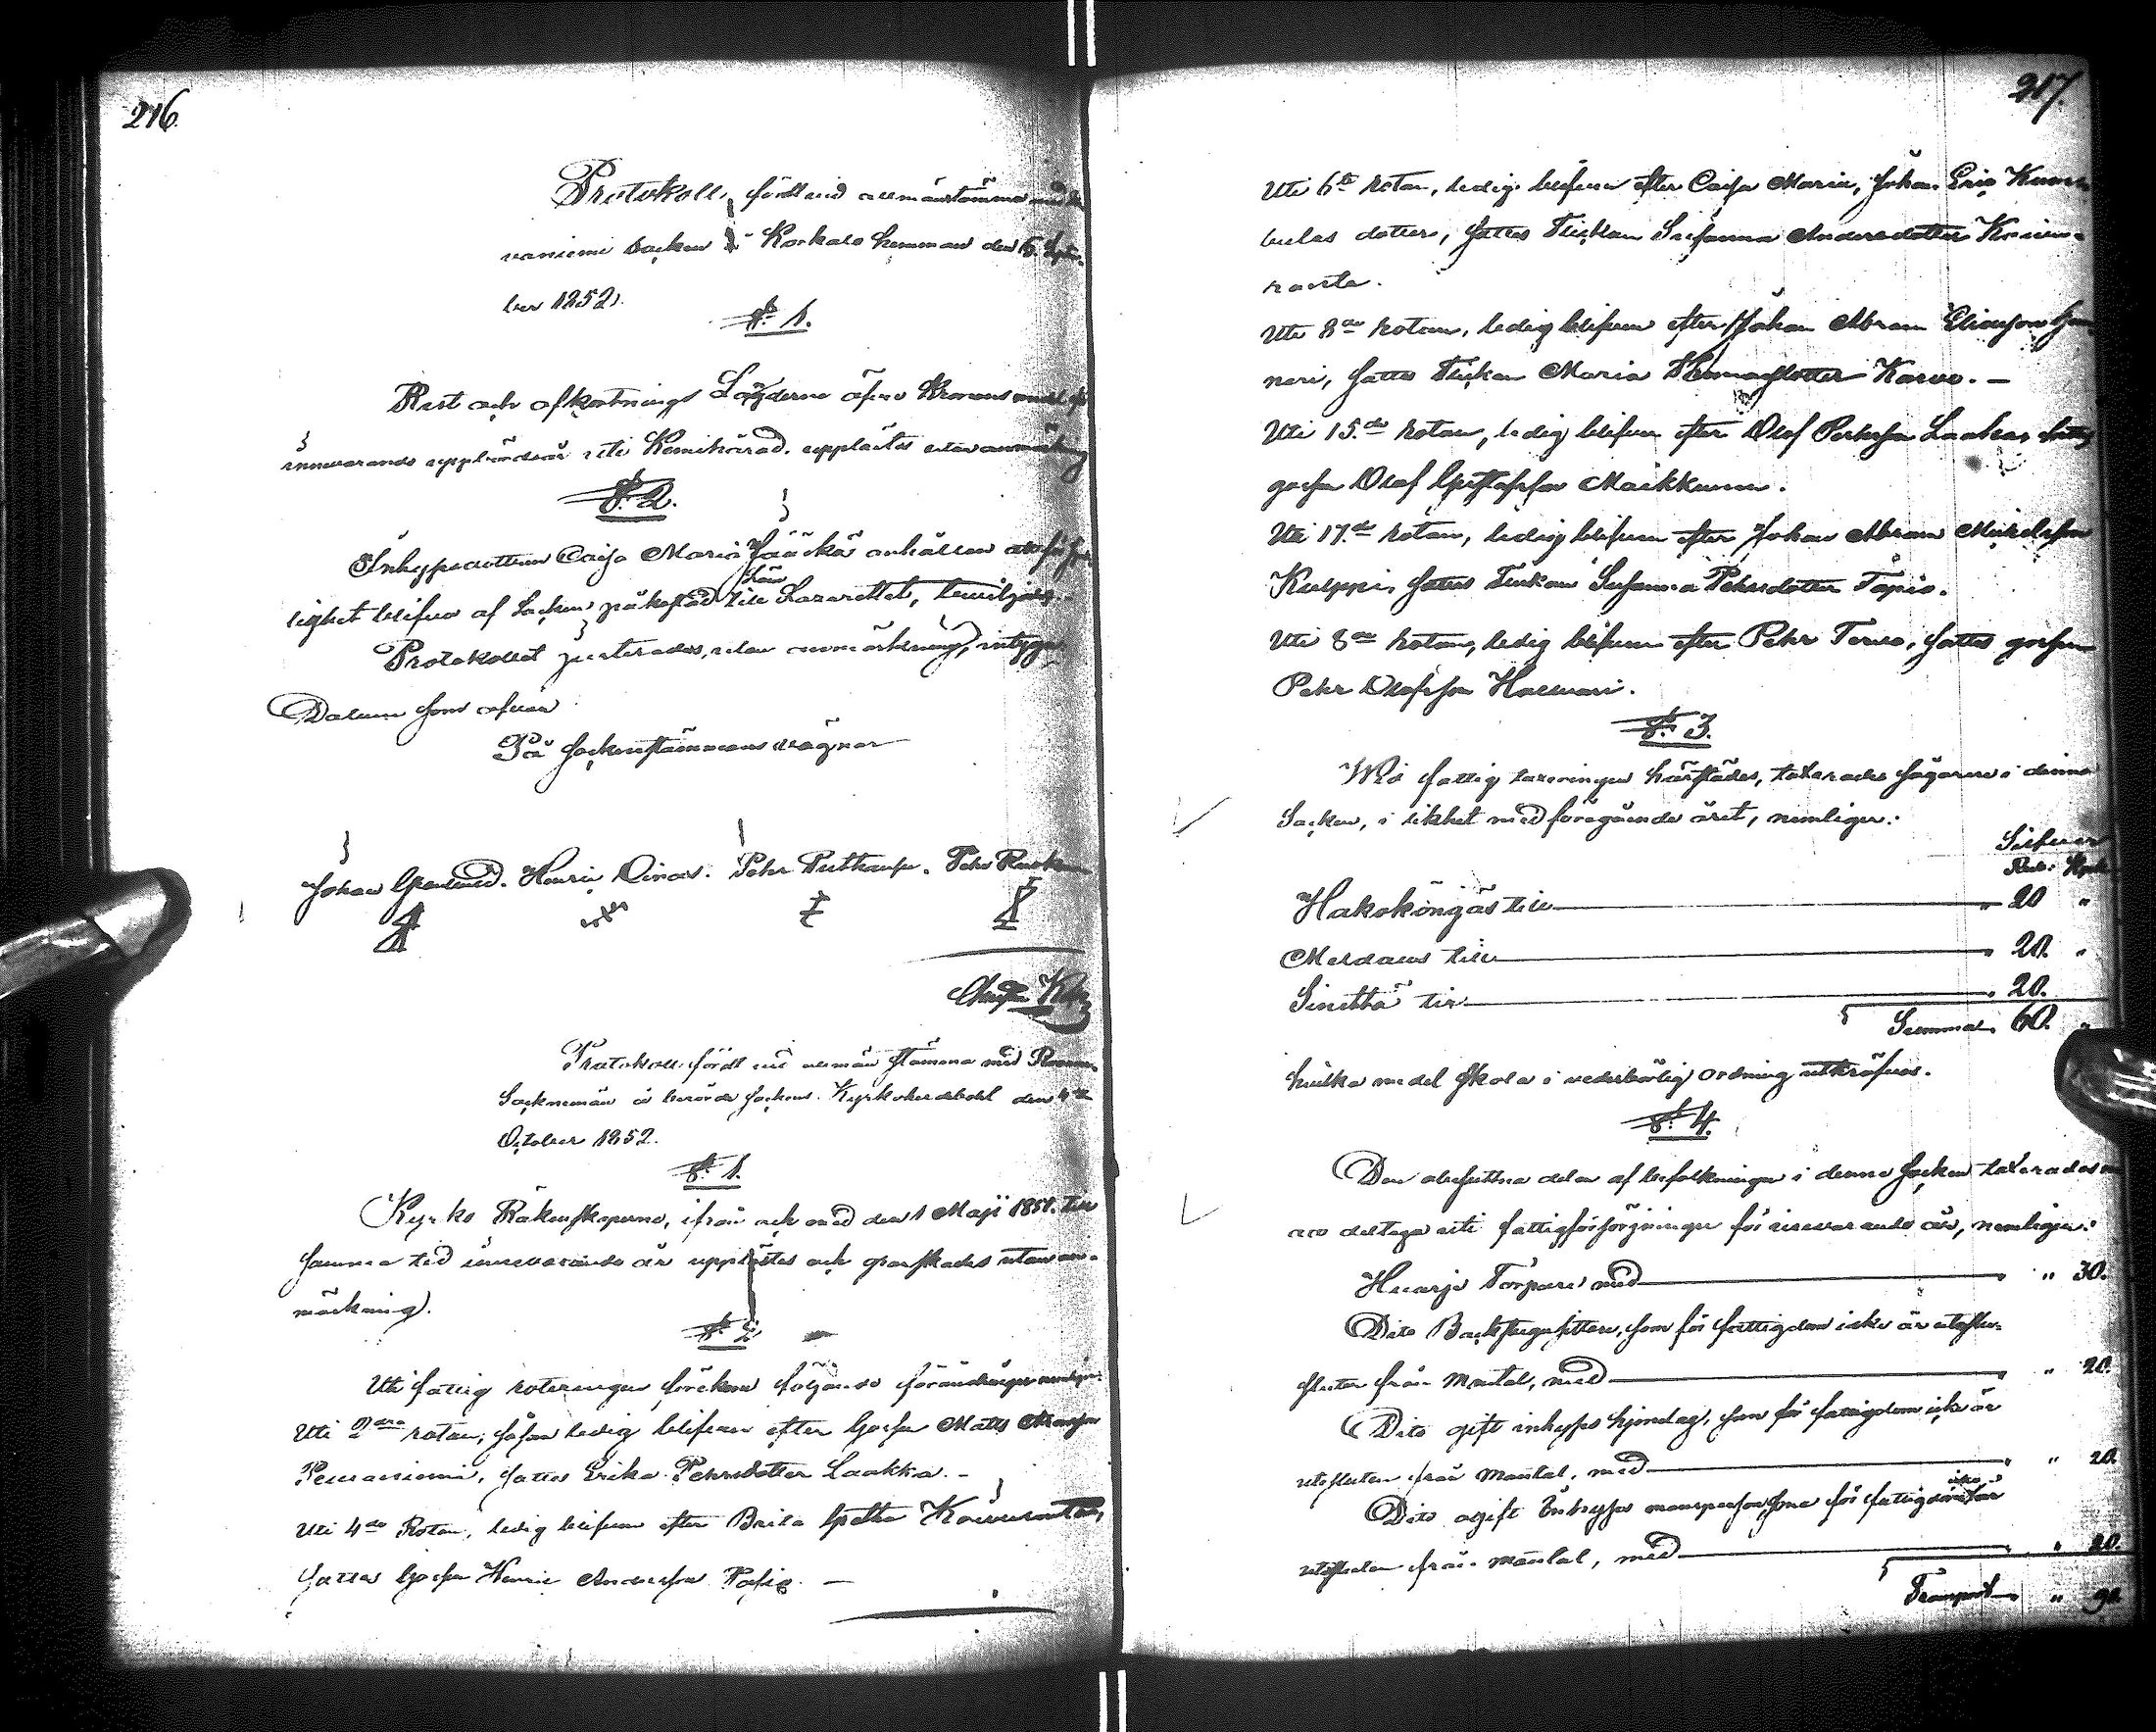 216.
Protokoll, fördt vid allmän stämma med
vaniemi Socken å Korkalo hemman den 6. Septem-
ber 1852.
§. 1.
Rest och afkortnings Längderne öfver Kronans
innevarande uppbördsår uti Kemihärad, upplästes utan anmärkning
§. 2.
Inhyses dottern Caisa Maria Jääskö anhållan
lighet blifva af Socken påkostad till Lazarettet,
Protokollet justerades, utan anmärkning, intyga
Datum som ofvan
På Sockenstämmans vägnar
Johan Grönlund. Henric Oinas. Pehr Ruokanen.
Protokoll, fördt vid allmän stämma med
Sockenmän å berörde Sockens Kyrkoherdebol den 4de
October 1852.
§. 1.
Kyrko Räkenskaperne, ifrån och med den 1 Maji 1851. till
samma tid innevarande år upplästes och granskades utan an-
märkning.
§. 2.
Uti fattig roteringen förekom följande förändringar nemligen:
Uti 2dra rotan, såsom ledig blifven efter Gossen Matts
Peuraniemi, sattes Erika Pehrsdotter Laakka. —
Uti 4de Rotan, ledig blifven efter Brita Greta
sattes Gossen Henric Andersson Posio. —
217.
Uti 6te rotan, ledig blifven efter Caisa Maria, Johan Eric
dotter, sattes Flickan Susanna Andersdotter Koivu-
ranta.
Uti 8de rotan, ledig blifven efter Johan Abram Eliasson
nari, sattes Flickan Maria Karvo. —
Uti 15.de rotan, ledig blifven efter Olof Pehrsson Laakso sattes
gossen Olof Gustafsson Maikkunen.
Uti 17.de rotan, ledig blifven efter Johan Abram Mickelsson
Kulppi, sattes Flickan Susanna Pehrsdotter Tapio.
Uti 8de rotan, ledig blifven efter Pehr Tervo, sattes gossen
Pehr Olofsson Halvari.
§. 3.
Wid fattig taxeringen härstädes, taxerades sågarne i denna
Socken, i likhet med föregående året, nemligen:
Silfver
Rub. Kop.
Hakoköngäs till — " 20 "
Meldaus till — " 20. "
Sinettä till — " 20.
Summa 60. "
hvilka medel skola i vederbörlig ordning utkräfvas.
§. 4.
Den obesuttna delen af befolkningen i denna Socken taxerades
att deltaga uti fattigförsörjningen för innevarande år, nemligen:
Hvarje Torpare med — " 30.
Dito Backstugusittare, som för fattigdom icke är uteslu-
sluten från Mantal, med — " 20.
Dito gift inhyses hjonelag, som för fattigdom icke är
utesluten från Mantal, med — " 20.
Dito ogift Inhyses mansperson, som för fattigdom icke är
utesluten från mantal, med — " 20.
Transport — " 90.